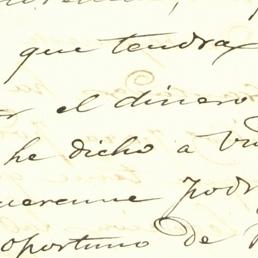 que tendra
el dinero
he dicho a
podr
oportuno de